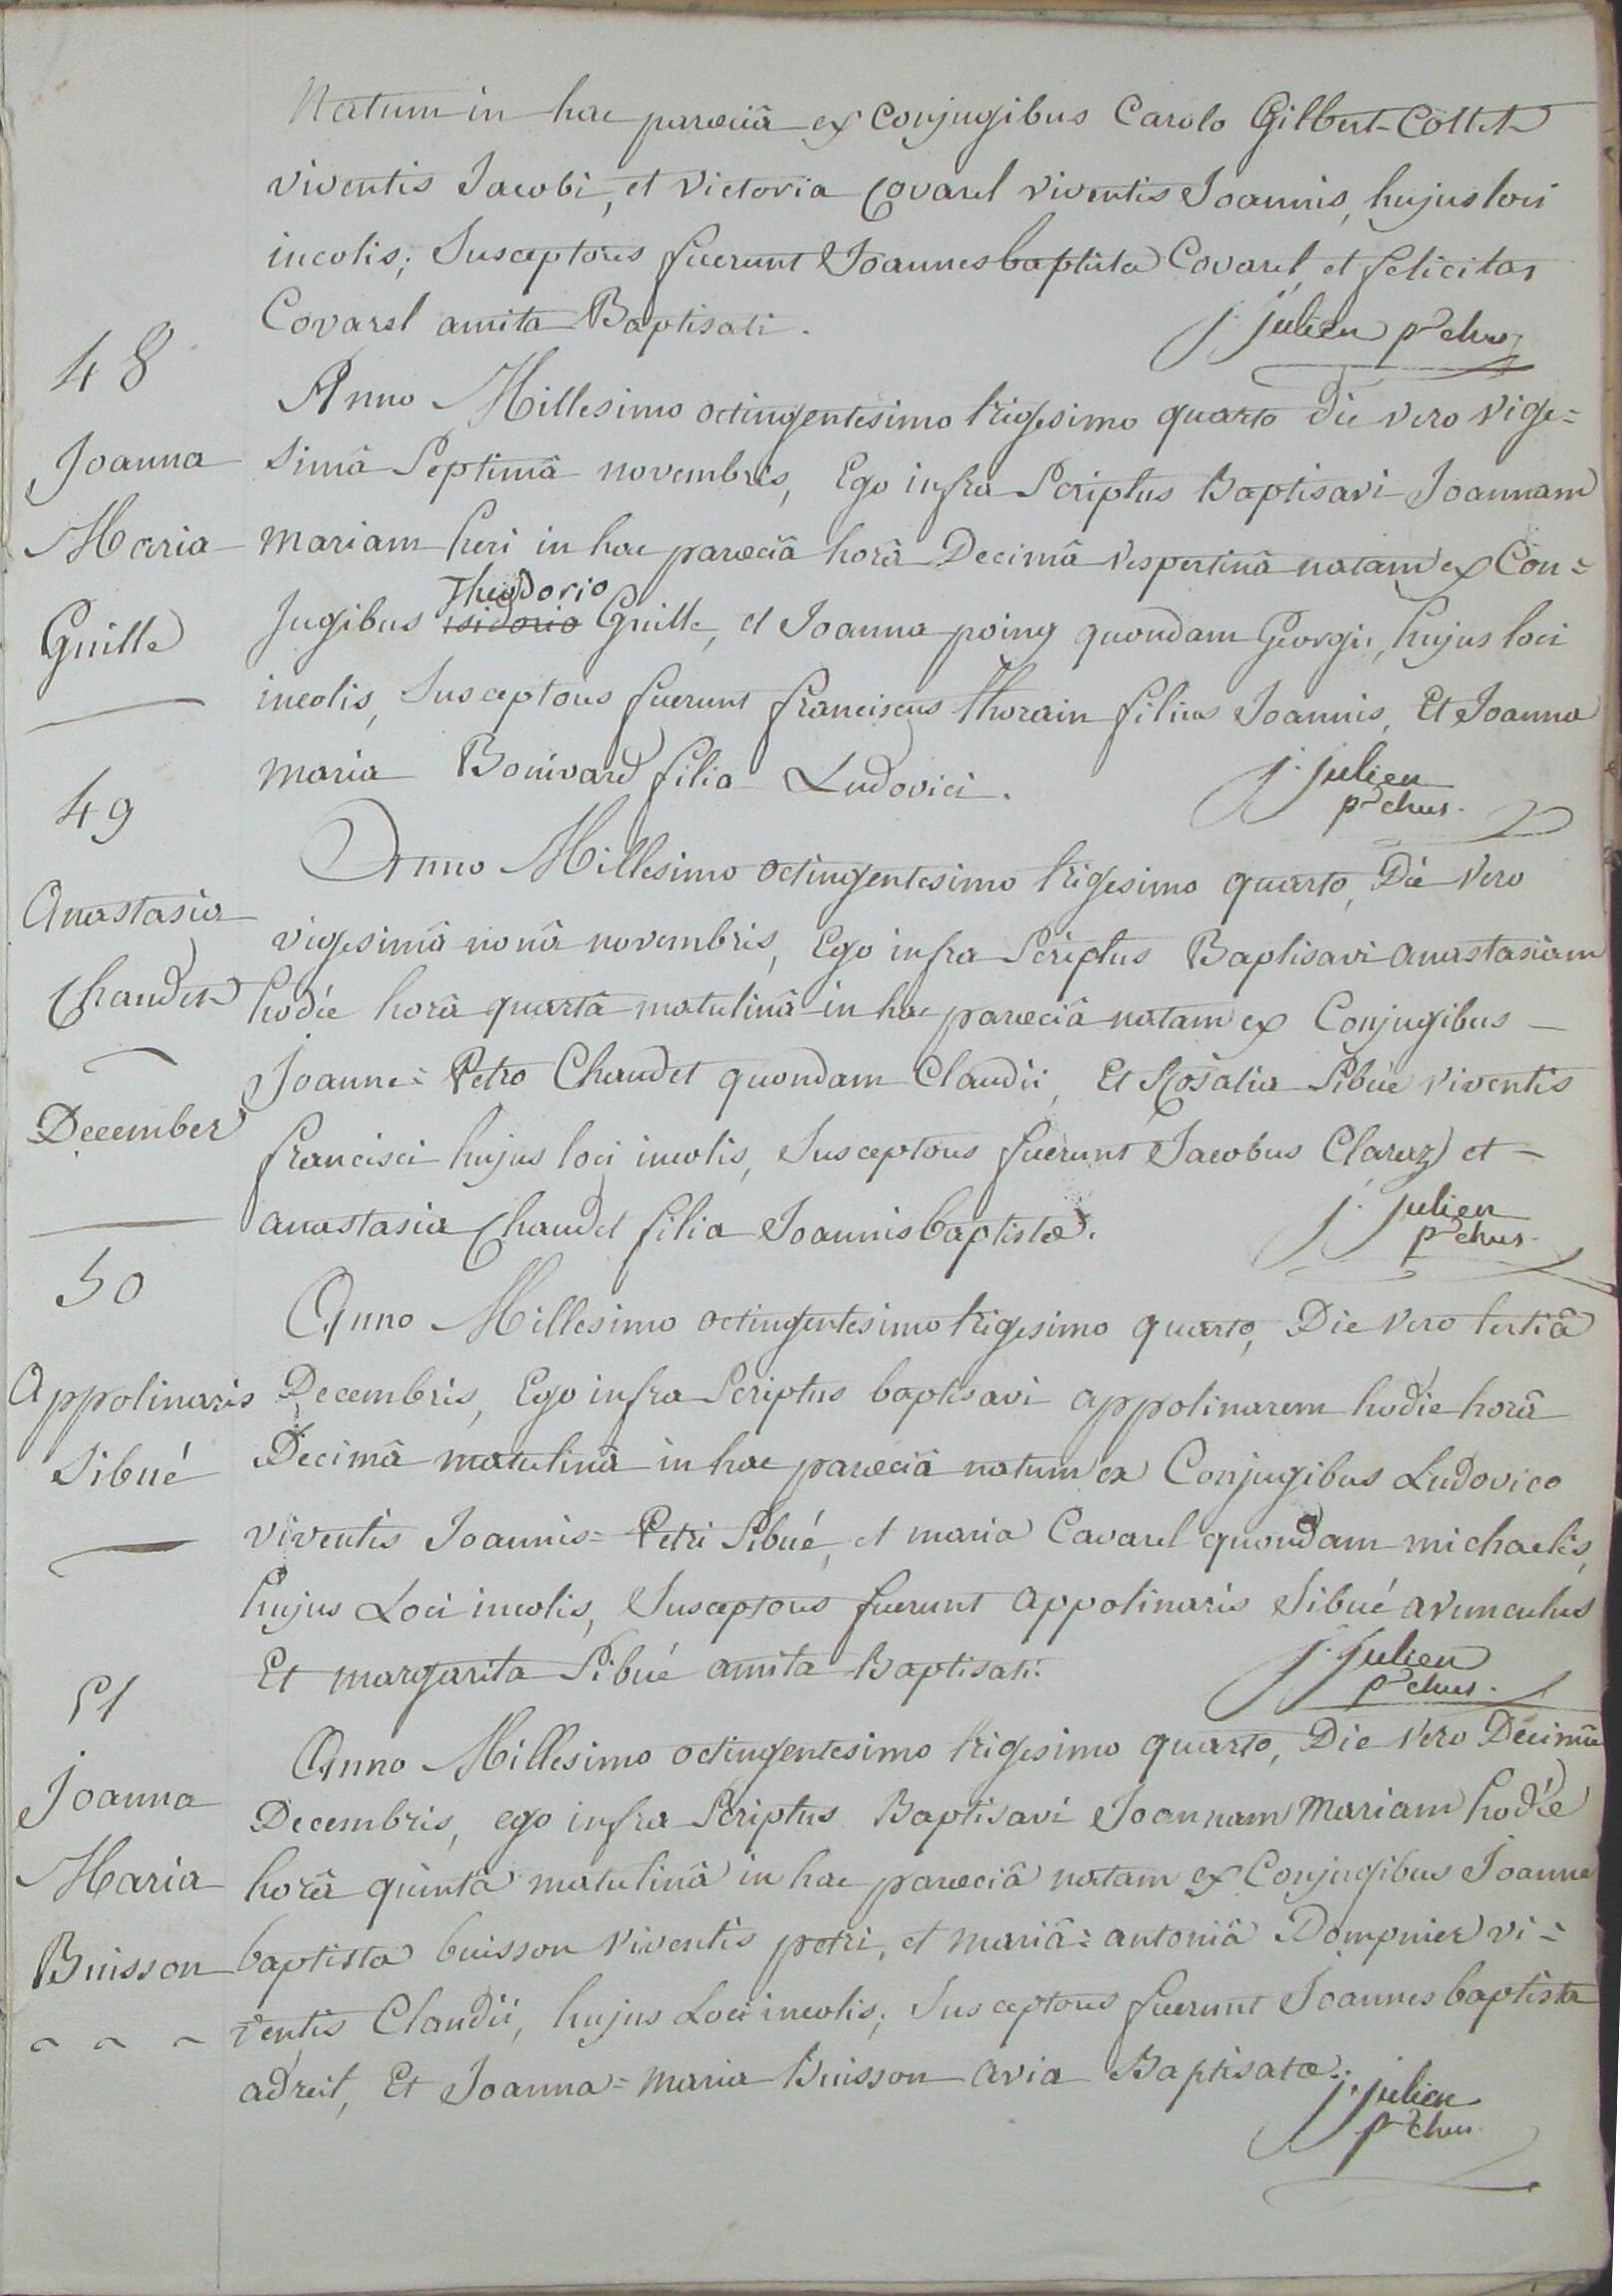 Natum in hac parœciâ ex Conjugibus Carolo Gilbert-Collet
viventis Jacobi, et Victoria Covarel viventis Joannis, hujus loci
incolis; Susceptores fuerunt Joannes baptista Covarel, et felicitas
Covarel amita Baptisati.
j. julien p.chus
48
Joanna
Maria
Guille
Anno Millesimo octingentesimo trigesimo quarto die vero vige=
simâ Septimâ novembris, Ego infra Scriptus Baptisavi Joannam
mariam heri in hac parœciâ horâ Decimâ vespertinâ natam ex Con=
Theodorio
jugibus isidorio Guille, et Joanna poing quondam Georgii, hujus loci
incolis, Susceptores fuerunt franciscus thorain filius Joannis, Et Joanna
maria Bonivard filia Ludovici.
j. julien
p.chus.
49
Anastasia
Chaudet
Anno Millesimo octingentesimo trigesimo quarto, Die Vero
vigesimâ nonâ novembris, Ego infra Scriptus Baptisavi anastasiam
hodie horâ quartâ matutinâ in hac parœciâ natam ex Conjugibus
Joanne= Petro Chaudet quondam Claudii, Et Rosalia Sibué viventis
francisci hujus loci incolis, Susceptores fuerunt Jacobus Claraz et
anastasia Chaudet filia Joannis baptistæ.
j. julien
p.chus.
December
50
Appolinaris
Sibué
Anno Millesimo octingentesimo trigesimo quarto, Die Vero tertiâ
Decembris, Ego infra Scriptus baptisavi appolinarem hodie horâ
Decimâ matutinâ in hac parœciâ natum ex Conjugibus Ludovico
viventis Joannis= Petri Sibué, et maria Cavarel quondam michaelis,
hujus Loci incolis, Susceptores fuerunt appolinaris Sibué avunculus
Et margarita Sibué amita Baptisati.
j. julien
p.chus.
51
Joanna
Maria
Buisson
Anno Millesimo octingentesimo trigesimo quarto, Die Vero Decimâ
Decembris, ego infra Scriptus Baptisavi Joannam Mariam hodie
horâ quintâ matutinâ in hac parœciâ natam ex Conjugibus Joanne
baptista buisson viventis petri, et mariâ= antoniâ Dompnier vi=
ventis Claudii, hujus Loci incolis; Susceptores fuerunt Joannes baptista
adreit, Et Joanna= maria Buisson avia Baptisatæ.
j. julien
p.chus.